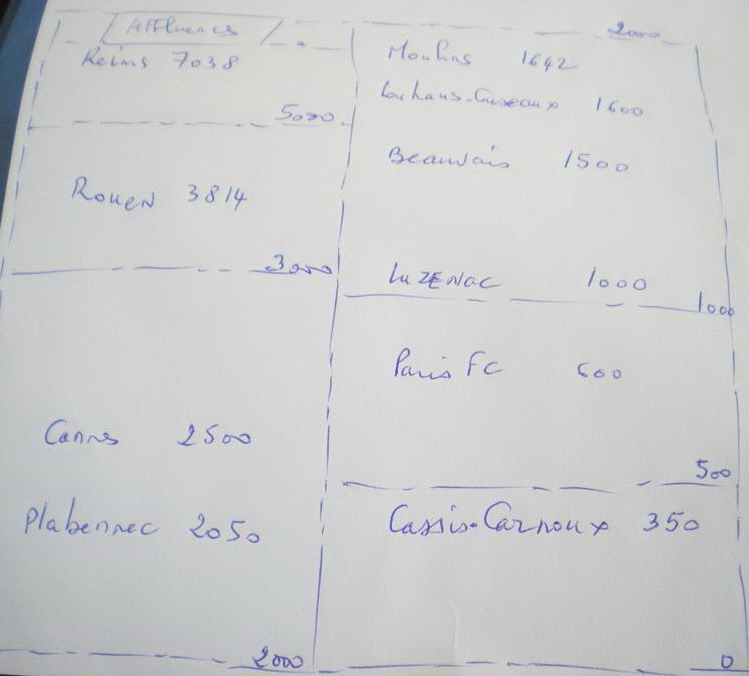 Affluences
Reims 7038
5000
Rouen 3814
3000
Cannes 2500
Plabennec 2050
2000
2000
Moulins 1642
Louhans-Cuiseaux 1600
Beauvais 1500
Luzenac 1000
1000
Paris FC 600
500
Cassis-Carnoux 350
0